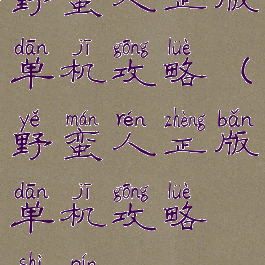 野蛮人正版
dān jī gōng lüè
单机攻略（
yě mán rén zhèng bǎn
野蛮人正版
dān jī gōng lüè
单机攻略
shì pín